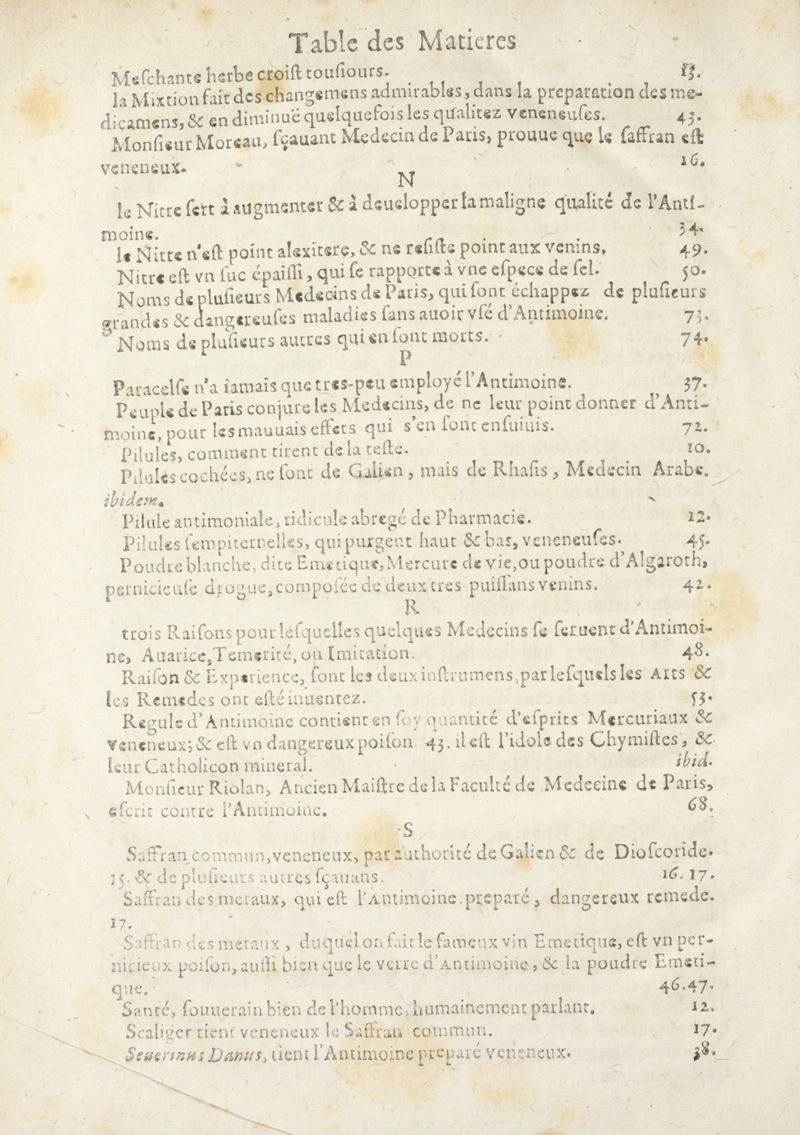 Table des Matieres
Meſchante herbe croiſt touſiours. 13.
la Mixtion fait des changemens admirables, dans la preparation des me-
dicamens, & en diminuë quelquefois les qualitez veneneuſes. 43.
Monſieur Moreau, ſçauant Medecin de Paris, prouue que le ſaffran eſt
veneneux. 16.
N
le Nitre ſert à augmenter & à deuelopper la maligne qualité de l'Anti-
moine. 34.
le Nitre n'eſt point alexitere, & ne reſiſte point aux venins. 49.
Nitre eſt vn ſuc épaiſſi, qui ſe rapporte à vne eſpece de ſel. 50.
Noms de pluſieurs Medecins de Paris, qui ſont échappez de pluſieurs
grandes & dangereuſes maladies ſans auoir vſé d'Antimoine. 73.
Noms de pluſieurs autres qui en ſont morts. 74.
P
Paracelſe n'a iamais que tres-peu employé l'Antimoine. 37.
Peuple de Paris conjure les Medecins, de ne leur point donner d'Anti-
moine, pour les mauuais effets qui s'en ſont enſuiuis. 72.
Pilules, comment tirent de la teſte. 10.
Pilules cochées, ne ſont de Galien, mais de Rhaſis, Medecin Arabe.
ibidem.
Pilule antimoniale, ridicule abregé de Pharmacie. 12.
Pilules ſempiternelles, qui purgent haut & bas, veneneuſes. 45.
Poudre blanche, dite Emetique, Mercure de vie, ou poudre d'Algaroth,
pernicieuſe drogue, compoſée de deux tres-puiſſans venins. 42.
R
trois Raiſons pour leſquelles quelques Medecins ſe ſeruent d'Antimoi-
ne, Auarice, Temerité, ou Imitation. 48.
Raiſon & Experience, ſont les deux inſtrumens, par leſquels les Arts &
les Remedes ont eſté inuentez. 53.
Regule d'Antimoine contient en ſoy quantité d'eſprits Mercuriaux &
veneneux; & eſt vn dangereux poiſon 43. il eſt l'idole des Chymiſtes, &
leur Catholicon mineral. ibid.
Monſieur Riolan, Ancien Maiſtre de la Faculté de Medecine de Paris,
eſcrit contre l'Antimoine. 68.
S
Saffran commun, veneneux, par authorité de Galien & de Dioſcoride.
15. & de pluſieurs autres ſçauans. 16. 17.
Saffran des metaux, qui eſt l'Antimoine preparé, dangereux remede.
17.
Saffran des metaux, duquel on fait le fameux vin Emetique, eſt vn per-
nicieux poiſon, auſſi bien que le verre d'Antimoine, & la poudre Emeti-
que. 46.47.
Santé, ſouuerain bien de l'homme, humainement parlant. 12.
Scaliger tient veneneux le Saffran commun. 17.
Seuerinus Danus, tient l'Antimoine preparé veneneux. 38.